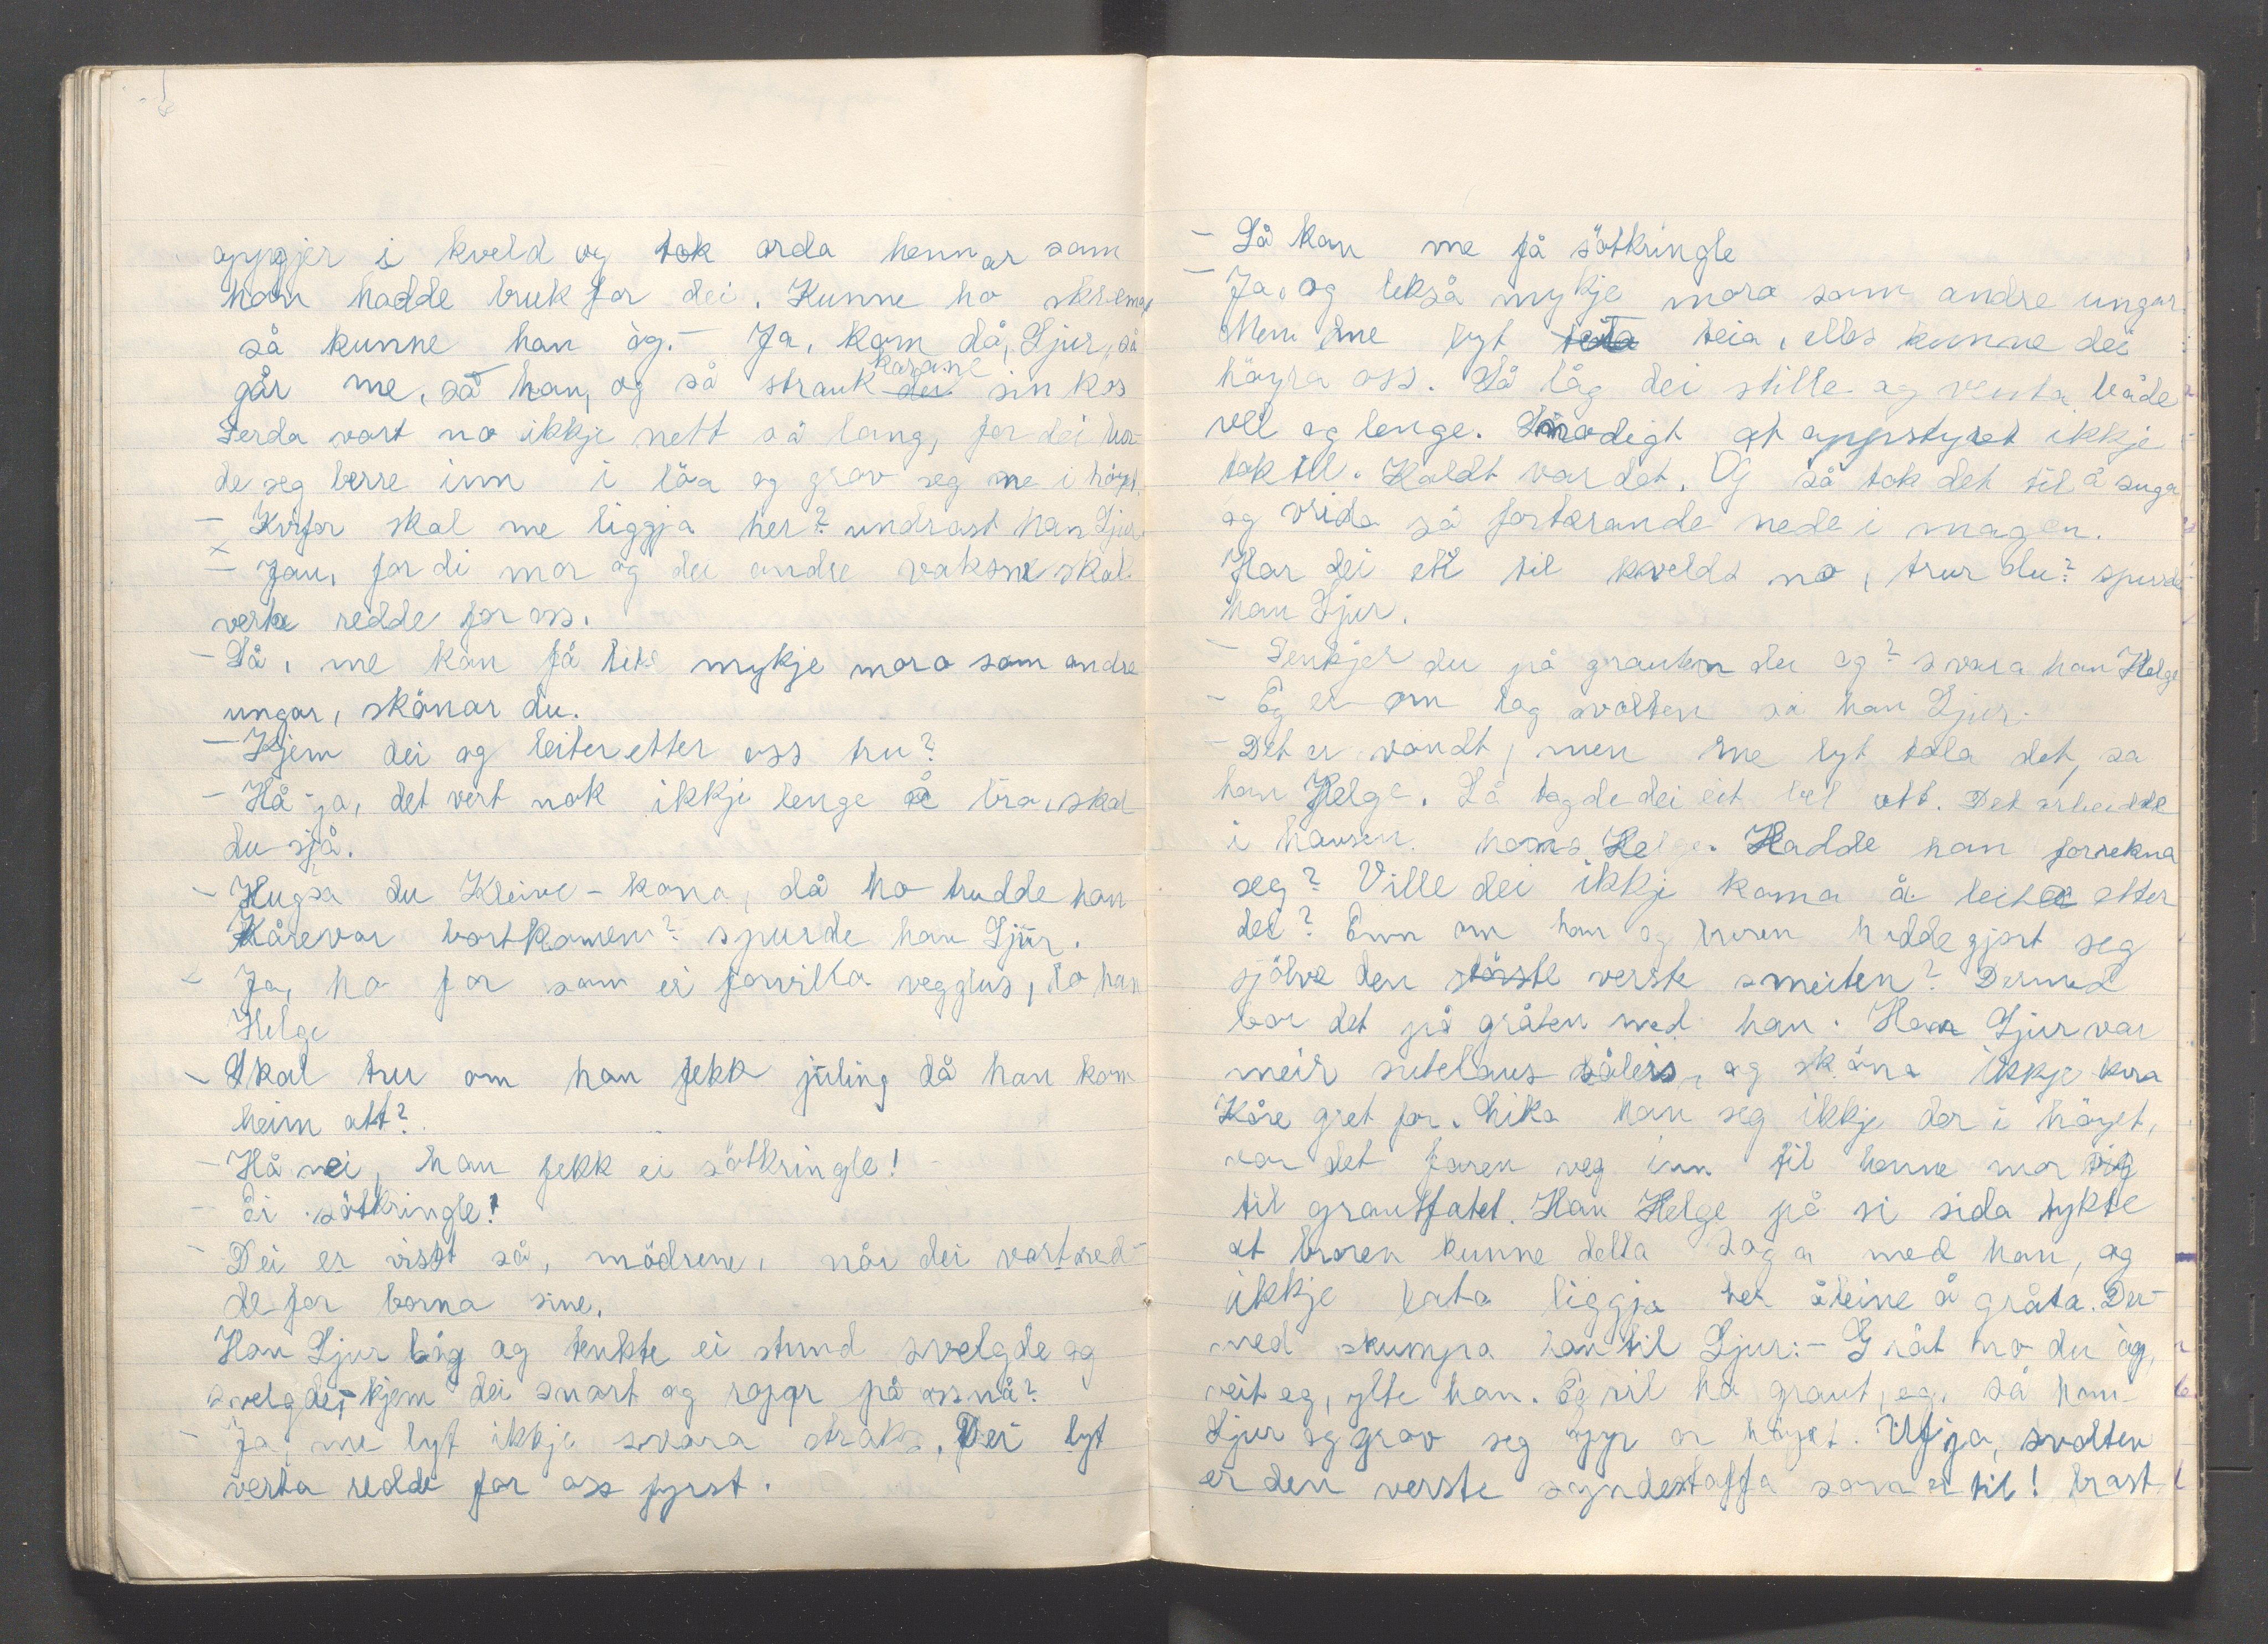 oppgjer i kveld og tok orda hennar som
han hadde bruk for dei. Kunne ho skræma
så kunne han òg. - Ja, kom då, Sjur, så
går me, sa han, og så strauk karane sin kos
Ferda vart no ikkje nett så lang, for dei hur-
de seg berre inn i löa og grov seg ne i höyt.
- Kvifor skal me liggja her? undrast han Sjur.
- Jau, fordi mor og dei andre vaksne skal
verta redde for oss.
- Då, me kan få like mykje moro som andre
ungar, skönar du.
- Kjem dei og leiter etter oss tru?
- Hå-ja, det vert nok ikkje lenge å bia, skal
du sjå.
- Hugsa du Kleive-kona, då ho trudde han
Kåre var bortkomen? spurde han Sjur.
- Ja, ho for som ei forvilla vegglus, lo han
Helge
- Skal tru om han fekk juling då han kom
heim att?
- Hå nei, han fekk ei sötkringle!
- Ei sötkringle!
- Dei er visst så, mödrene, når dei vart red-
de for borna sine.
Han Sjur låg og tenkte ei stund svelgde og
svelgde, kjem dei snart og ropar på oss nå?
- Ja, me lyt ikkje svara straks. Dei lyt
verta redde for oss fyrst.
- Så kan me få sötkringle
- Ja, og likså mykje moro som andre ungar.
Men me lyt teia, elles kunne dei
höyra oss. Så låg dei stille og venta både
vel og lenge. Smodigt at oppstyret ikkje
tok til. Kaldt var det. Og så tok det til å suga
og vrida så fortærande nede i magen.
Har dei ett til kvelds no, trur du? spurde
han Sjur.
- Tenkjer du på grauten du og? svara han Helge
- Eg er om lag svolten sa han Sjur.
- Det er vondt, men me lyt tola det, sa
han Helge. Så tagde dei eit bel att. Det arbeidde
i hausen hans Helge. Hadde han forrekna
seg? Ville dei ikkje koma å leita etter
dei? Enn om han og broren hadde gjort seg
sjölve den störste verste smeiten? Dermed
bar det på gråten med han. Han Sjur var
meir sutelaus såleis, og sköna ikkje kva
Kåre gret for. Lika han seg ikkje der i höyet,
var det faren veg inn til henne mor og
til grautfatet. Han Helge på si sida tykte
at broren kunne delta laga med han, og
ikkje lata liggja her åleine å gråta. Der-
med skumpa han til Sjur: - Gråt no du òg,
veit eg, ylte han. Eg vil ha graut, eg, sa han
Sjur og grov seg upp or höyet. Uf ja, svolten
er den verste syndestraffa som er til! brast